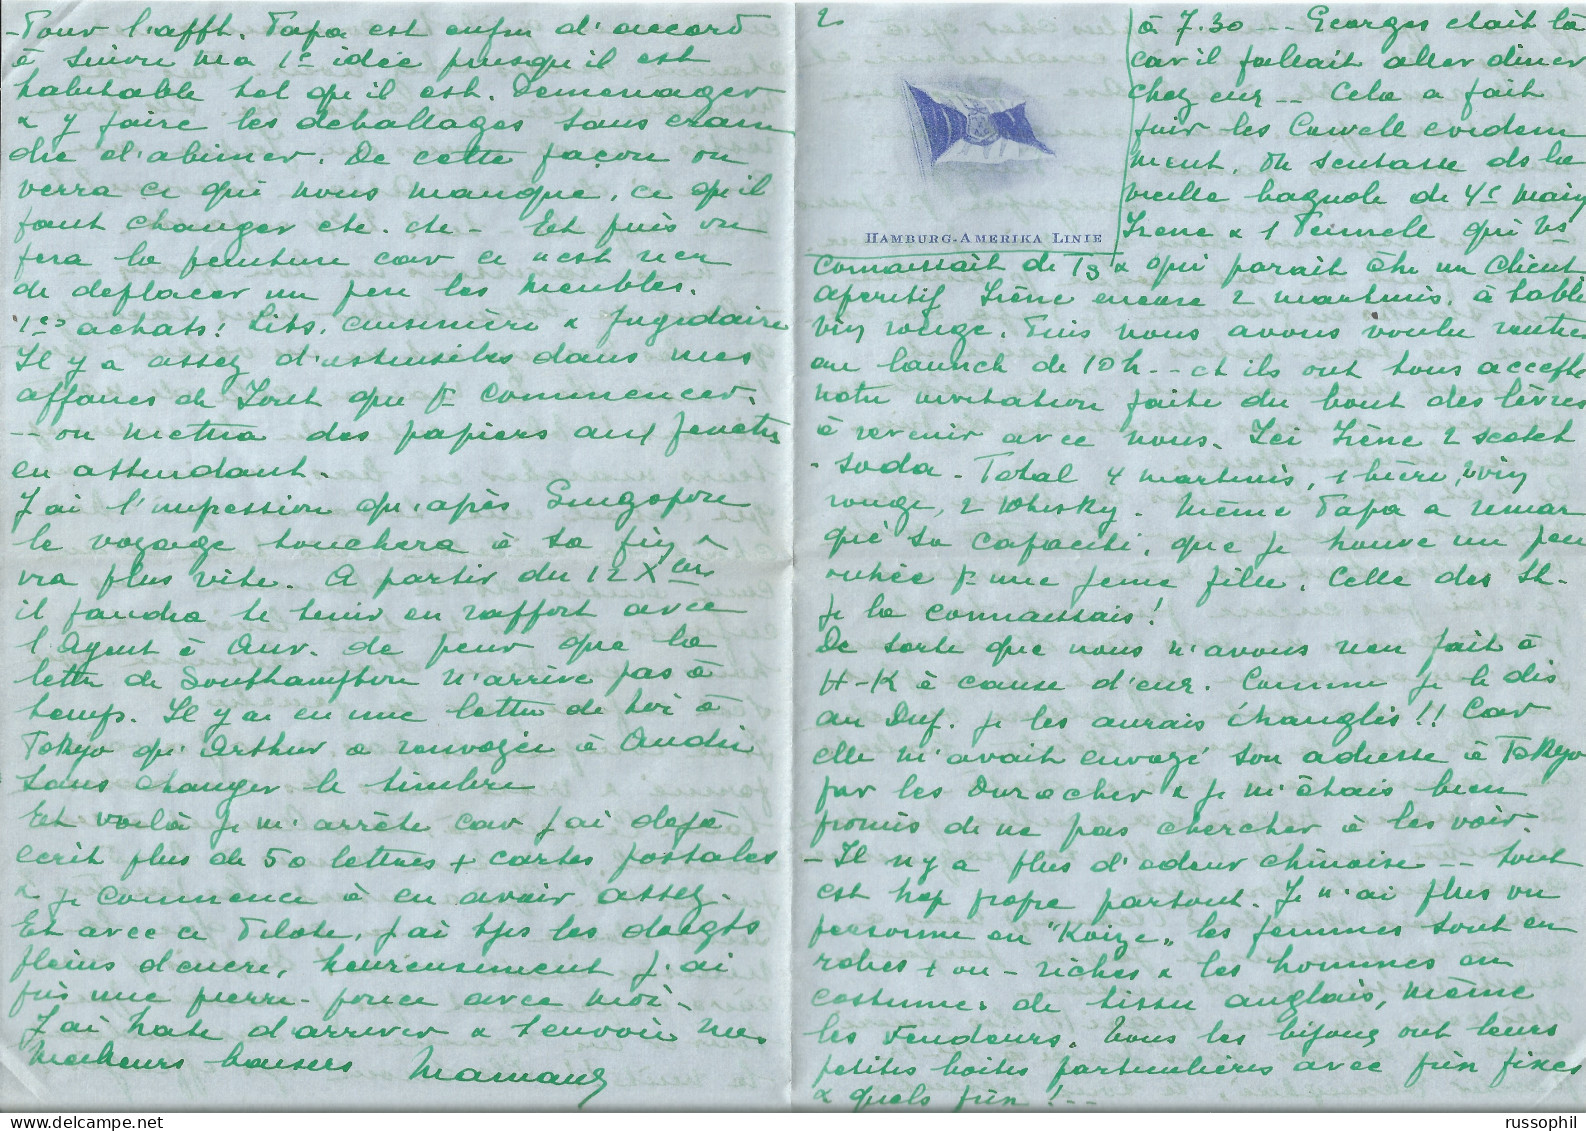 - Pour l'afft. Papa est enfin d'accord
à suivre ma 1e idée puisqu'il est
habitable tel qu'il est. Demenager
& y faire les deballages sans crain
dre d'abimer. De cette façon on
verra ce qui nous manque, ce qu'il
faut changer etc. etc - Et puis on
fera la peinture car ce n'est rien
de deplacer un peu les meubles.
1es achats: Lits, cuisinière & frigidaire
Il y a assez d'ustensiles dans mes
affaires de que pr commencer.
-- on mettra des papiers aux fenêtres
en attendant.
J'ai l'impression qu'après Singapour
le voyage touchera à sa fin
ira plus vite. A partir du 12 Xbre
il faudra te tenir en rapport avec
l'Agent à Anv. de peur que la
lettre de Southampton n'arrive pas à
temps. Il y a eu une lettre de toi à
Tokyo qu'Arthur a renvoyée à André
sans changer le timbre
Et voilà je m'arrête car j'ai dejà
ecrit plus de 50 lettres + cartes postales
& je commence à en avoir assez.
Et avec ce Pilote, j'ai tjs les doigts
pleins d'encre, heureusement j'ai
pris une pierre-ponce avec moi -
J'ai hate d'arriver & t'envoie mes
Meilleurs baisers Maman
2
HAMBURG-AMERIKA LINIE
à 7.30 -- Georges etait là
car il fallait aller diner
chez eux -- Cela a fait
fuir les Cowell evidem
ment. On s'entasse ds la
vieille bagnole de 4e main
Irene & 1 qui les
connaissait de & qui parait être un client
aperitif Irène encore 2 martinis, à table
vin rouge. Puis nous avons voulu rentrer
au launch de 10 h -- et ils ont tous accepté
notre invitation faite du bout des lèvres
à revenir avec nous. Ici Irène 2 scotch
- soda - Total 4 martinis, 1 bière, vin
rouge, 2 Whisky. Même Papa a remar
qué sa capacité, que je trouve un peu
outrée pr une jeune fille. Celle des
je la connaissais!
De sorte que nous n'avons rien fait à
H-K à cause d'eux. Comme je le dis
au Duf. je les aurais étranglés!! Car
elle m'avait envoyé son adresse à Tokyo
par les Durocher & je m'étais bien
promis de ne pas chercher à les voir.
- Il n'y a plus d'odeur chinoise -- tout
est trop propre partout. Je n'ai plus vu
personne en "Koize", les femmes sont en
robes + ou - riches & les hommes en
costumes de tissu anglais, même
les vendeurs. Tous les bijoux ont leurs
petites boites particulières avec prix fixes
& quels prix! --